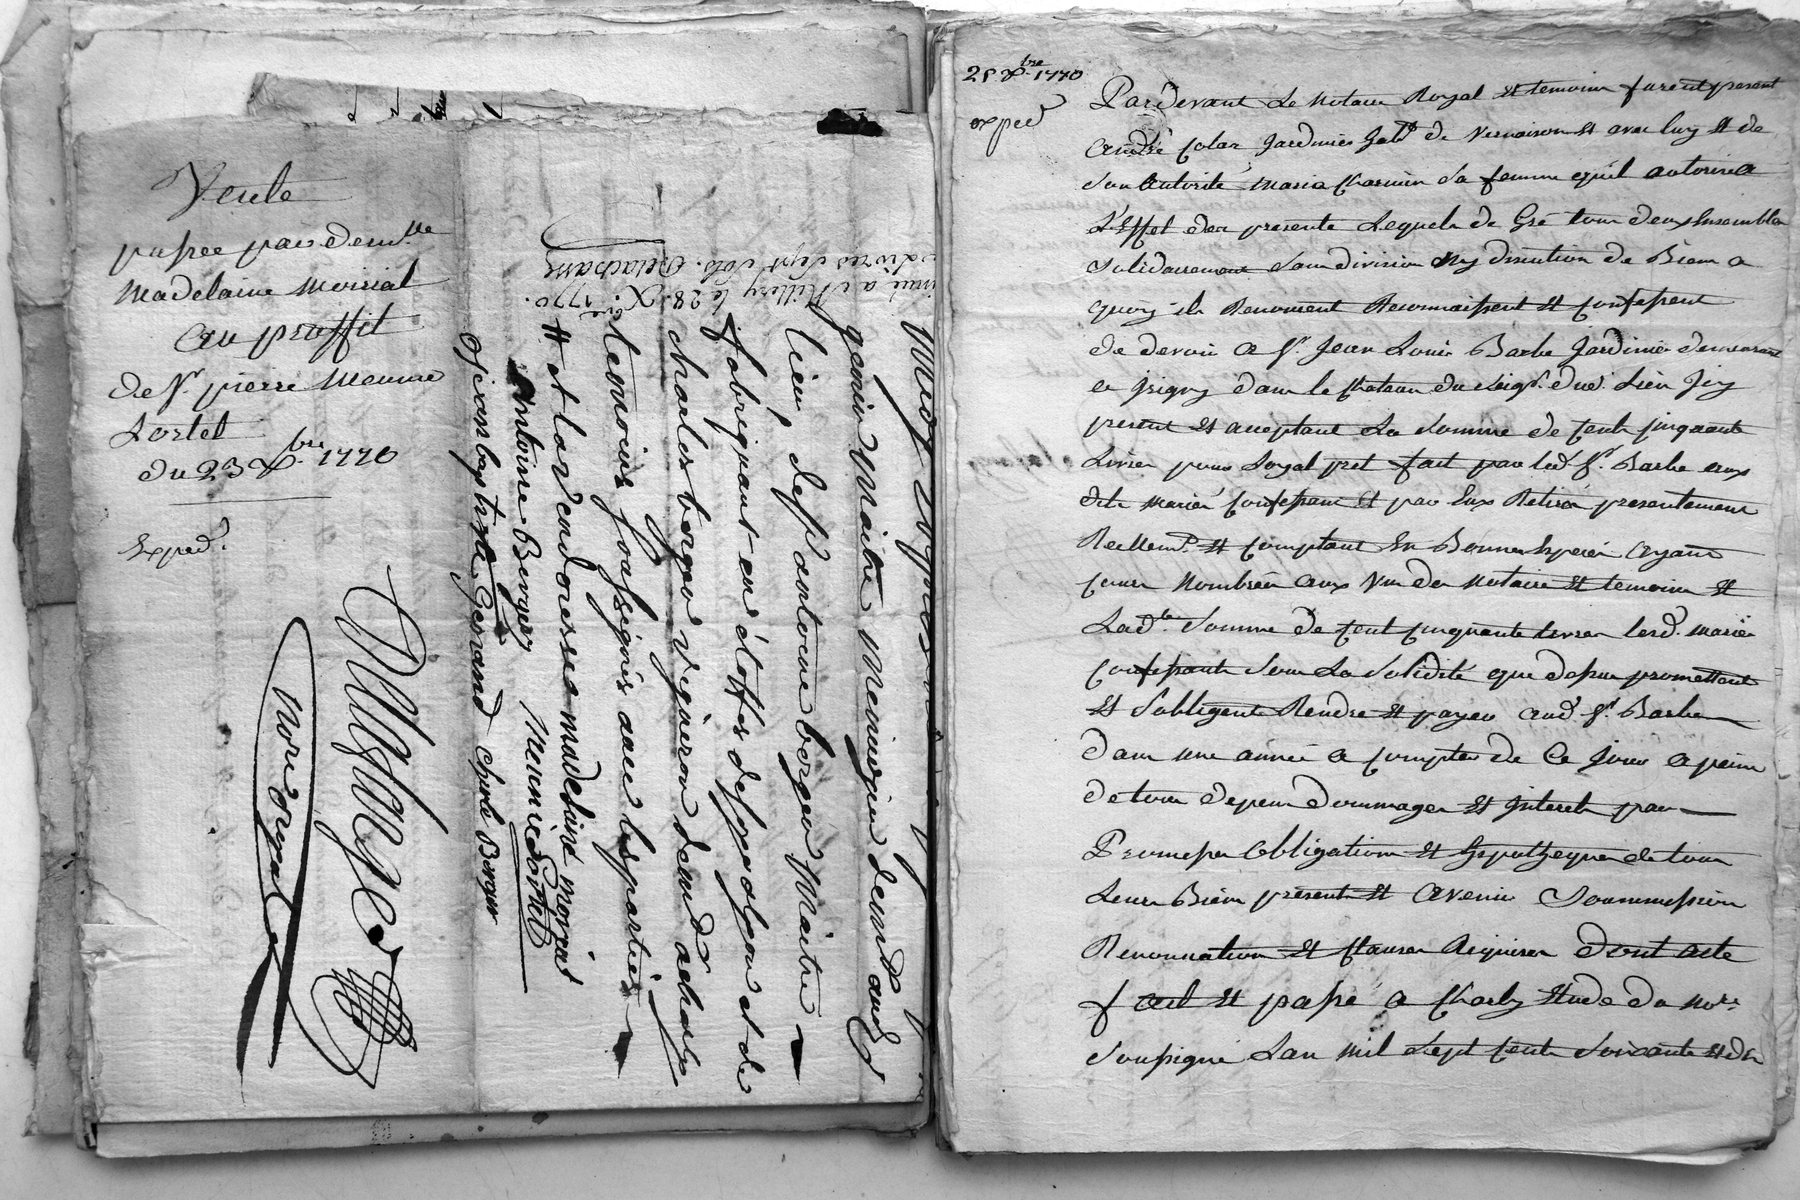 Vente
passee par dem.lle
Madelaine moirial
au proffit
de Sr. pierre Meunie
Lortet
du 23 Xbre. 1770
Exped.
genier Maitre
lieu deff antoine berger Maitre
fabriquant en étoffe de
charles berger vigneron demt. a charly
temoins soussignés avec les parties
et lad. venderesse madelaine moirial
antoine Berger Meunié Lortet
Jean baptiste Gerand Charle Berger
Nore. Royal
a Millery le 28. Xbre. 1770.
livres sept sols. Delacham
25 Xbre. 1770
exped
Pardevant Le Notaire Royal Et temoins furent present
André Colas Jardinier habt. de Vernaison Et avec luy Et de
Son Autorité Maria Charvin Sa femme qu'il autorise a
L'Effet des presente Lequels de Gré tous deux Ensemble
Solidairement Sans division Ny discution de Biens a
quoy ils Renoncent Reconnaissent Et Confessent
de devoir a Sr. Jean Louis Barbe Jardinier demeurant
a Irigny dans le Chateau du Seigr. dud. Lieu Icy
present Et acceptant La Somme de Cent Cinquante
Livres pour Loyal pret fait par led. Sr. Barbe aux
dits Mariés Confessant Et par Eux Retiré presentement
Reellemt. Et Comptant En Bonnes Especes ayant
Cours Nombrées aux Vu des Notaire Et temoins Et
Lad.te Somme de Cent Cinquante livres lesd. Mariés
Confessants Sous La Solidité que dessus promettent
Et S'obligent Rendre Et payer aud. Sr. Barbe
dans une année a Compter de Ce Jour a peine
de tous depens dommages Et Interets par
Promesse Obligation Et hypotheque de tous
Leurs Biens présents Et avenir Soummission
Renonciation Et Clauses Requises dont acte
fait Et passé a Charly Etude du Nore.
Soussigné L'an Mil Sept Cent Soixante Et dix